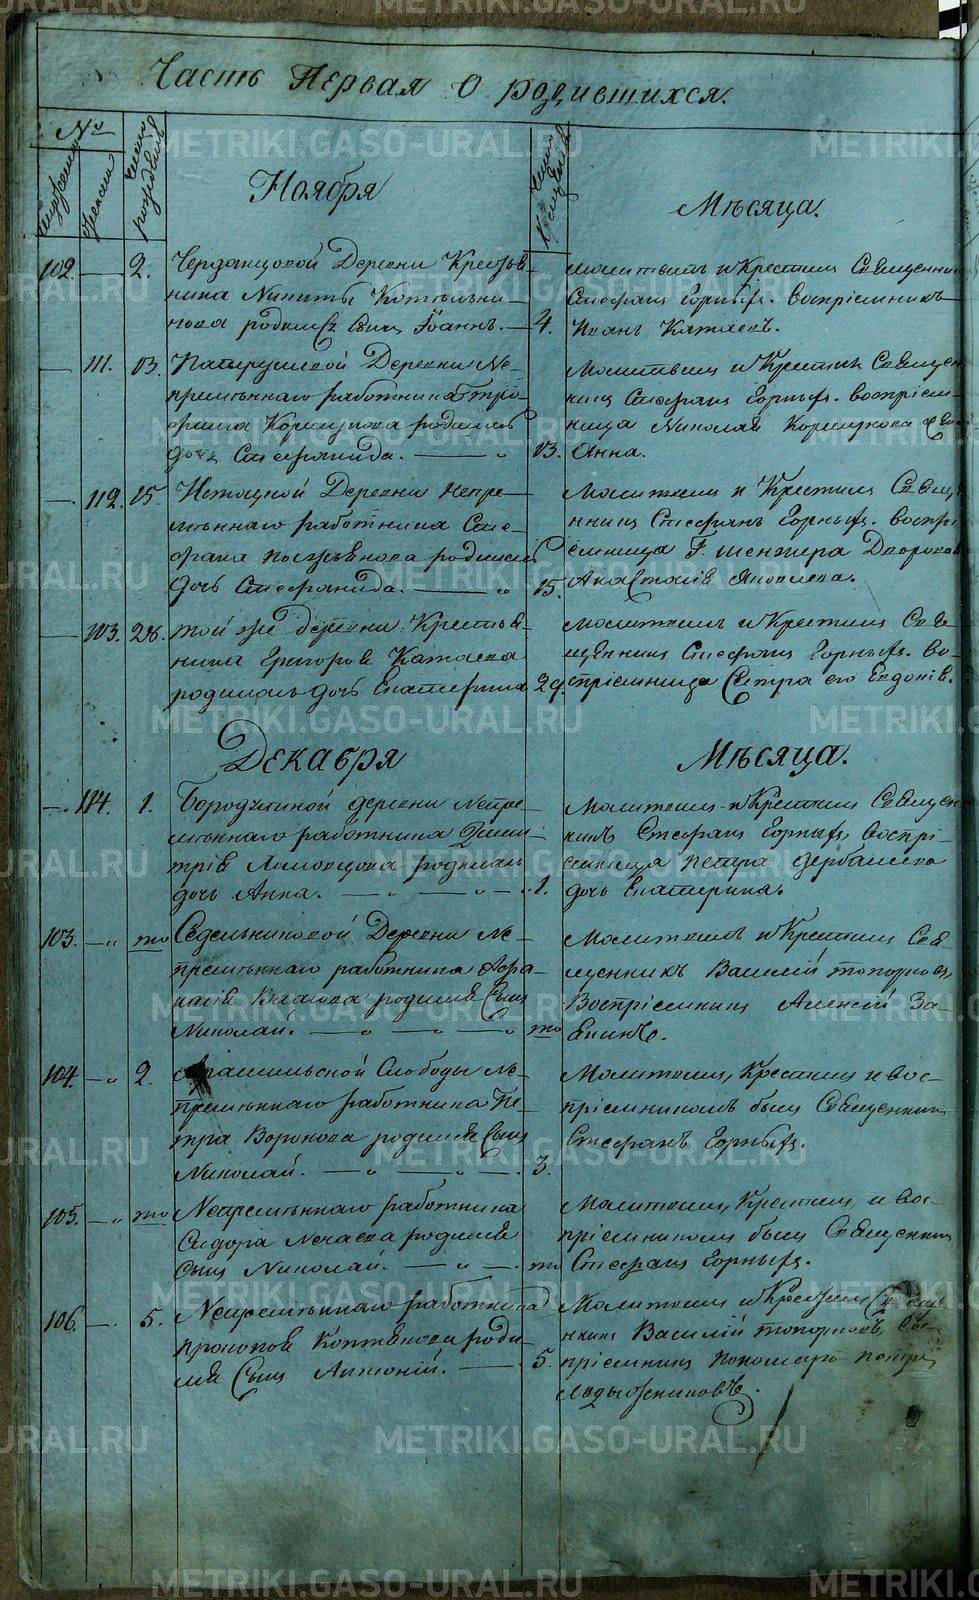 Часть Первая О родившихся.
№
мужеска
женска
число рождения
Ноября
число крещения
Мѣсяца.
102. — 2. Черданцовой Деревни Крестья-
нина Никиты Котельни-
кова родился Сынъ Іоаннъ. — 4.
Молитвилъ и Крестилъ Священникъ
Стефанъ Горныхъ. воспріемникъ
Иванъ Катаевъ.
— 111. 13. Патрушевой Деревни Не-
премѣннаго работника Тро-
фима Коршунова родилась
дочь Стефанида. — 13.
Молитвилъ и Крестилъ Священ-
никъ Стефанъ Горныхъ. воспріем-
ница Николая Коршунова
Анна.
— 112. 15. Деревни Непре-
мѣннаго работника Сте-
фана родилась
Дочь Стефанида. — 15.
Молитвилъ и Крестилъ Священ-
никъ Стефанъ Горныхъ. воспрі-
емница Г.
Анастасія Яковлева.
— 103. 28. той же деревни Крестья-
нина Григорія Катаева
родилась дочь Екатерина 29.
Молитвилъ и Крестилъ Свя-
щенникъ Стефанъ Горныхъ. во-
спріемница Сестра его Евдокія.
Декабря
Мѣсяца.
—. 114. 1. Бородулиной деревни Непре-
мѣннаго работника Дими-
трія родилась
дочь Анна. — 1.
Молитвилъ и Крестилъ Священ-
никъ Стефанъ Горныхъ, воспрі-
емница Петра Дербышева
дочь Екатерина.
103. — то Седельниковой Деревни Не-
премѣннаго работника Афа-
насія Власова родился Сынъ
Николай. — то
Молитвилъ и Крестилъ Свя-
щенникъ Василій Топорковъ,
Воспріемникъ Алексѣй За-
104. — 2. Арамильской Слободы Не-
премѣннаго работника Пе-
тра Воронова родился Сынъ
Николай. — 3.
Молитвилъ, Крестилъ и вос-
пріемникомъ былъ Священникъ
Стефанъ Горныхъ.
105. — то Непремѣннаго работника
Сидора Нечаева родился
Сынъ Николай. — то
Молитвилъ, Крестилъ и вос-
пріемникомъ былъ Священникъ
Стефанъ Горныхъ.
106. —. 5. Непремѣннаго работника
Прокопія Коптякова роди-
лся Сынъ Антоній. — 5.
Молитвилъ и Крестилъ Священ-
никъ Василій Топорковъ, Вос-
пріемникъ пономарь Петръ
Ладыжниковъ.
METRIKI.GASO-URAL.RU